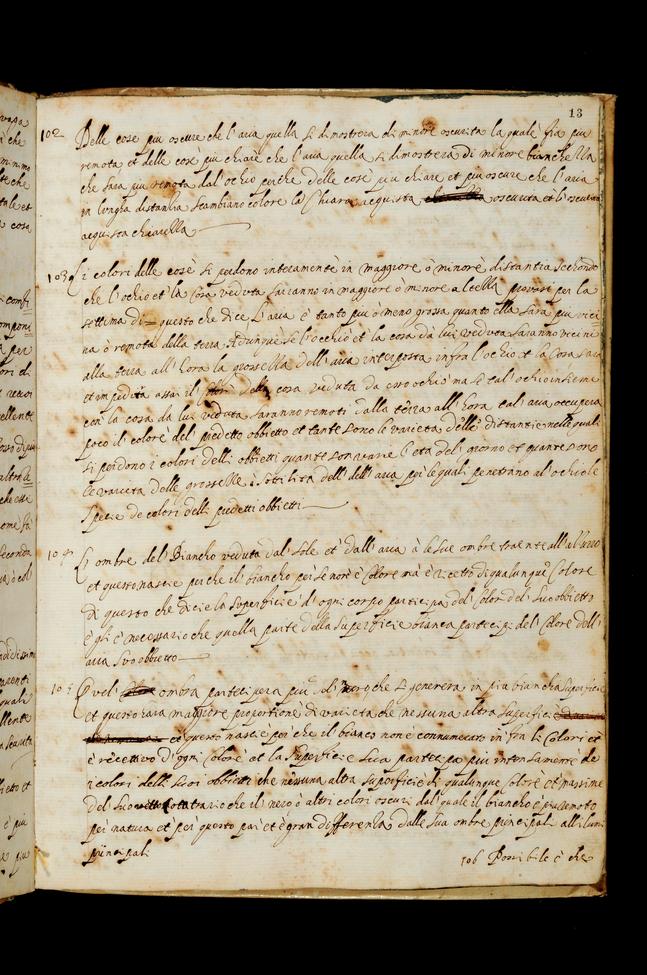 13
102 Delle cose piu oscure che l'aria quella si dimostrera di minore oscurita la quale fia piu
remota et delle cose piu chiare che l'aria quella si dimostrera di minore bianchezza
che sara piu remota dal'ochio perche delle cose piu chiare et piu oscure che l'aria
in lungha distantia scambiano colore la Chiara acquista oscurita et l'oscura
acquista chiarezza
103 Li colori delle cose si perdono interamente in maggiore ò minore distantia secondo
che l'ochio et la cosa veduta saranno in maggiore ò minore alteza provasi per la
settima di questo che dice L'aria è tanto piu ò meno grossa quanto ella sara piu vici
na ò remota della terra Adunque se l'occhio et la cosa da lui veduta saranno vicini
alla terra all'hora la grossezza dell'aria interposta infra l'ochio et la cosa sara
et impedita assai il colore della cosa veduta da esso ochio ma se tal'ochio insieme
con la cosa da lui veduta saranno remoti dalla terra all'hora tal aria occupera
poco il colore del predetto obbietto et tante sono le varieta delle distantie nelle quali
si perdono i colori delli obbietti quante son varie l'eta del giorno et quante sono
le varieta delle grossezze ò sottilita dell' dell' aria per le quali penetrano al'ochio le
spetie de colori delli predetti obbietti
104 L'ombre del Biancho veduto dal sole et dall'aria à le sue ombre traente all'azurro
et questo nascie perche il biancho per se non è colore ma è ricetto di qualunque colore
di questo che dicie la superficie d'ogni corpo participa del color del suo obbietto
è gli è necessario che quella parte della superficie bianca partecipi del colore dell'
aria suo obbietto
105 Quel' ombra partecipera piu del nero che si generera in piu biancha superficie
et questo hara maggiore proportione di varieta che nessuna altra superficie
et questo nasce perche il bianco non è connumerato in fra li colori et
è recettivo d'ogni colore et la superficie sua partecipa piu intensamente de
i colori delli suoi obbietti che nessuna altra superficie di qualunque colore et massime
del suo retto contrario che il nero ò altri colori oscuri dal quale il biancho è piu remoto
per natura et per questo par et è gran differenza dalle sua ombre principali alli lumi
principali
106 Possibile è che